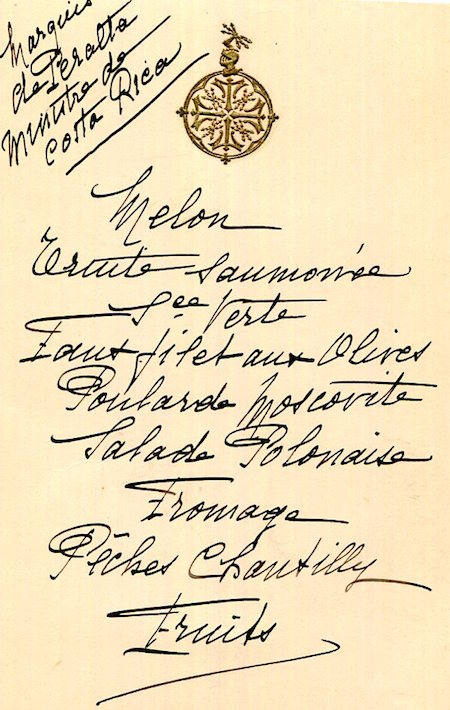 Marquis
de Peralta
Ministre de
Costa Rica
Melon
Truite Saumonée
Sce Verte
Faux filet aux Olives
Poularde Moscovite
Salade Polonaise
Fromage
Pêches Chantilly
Fruits